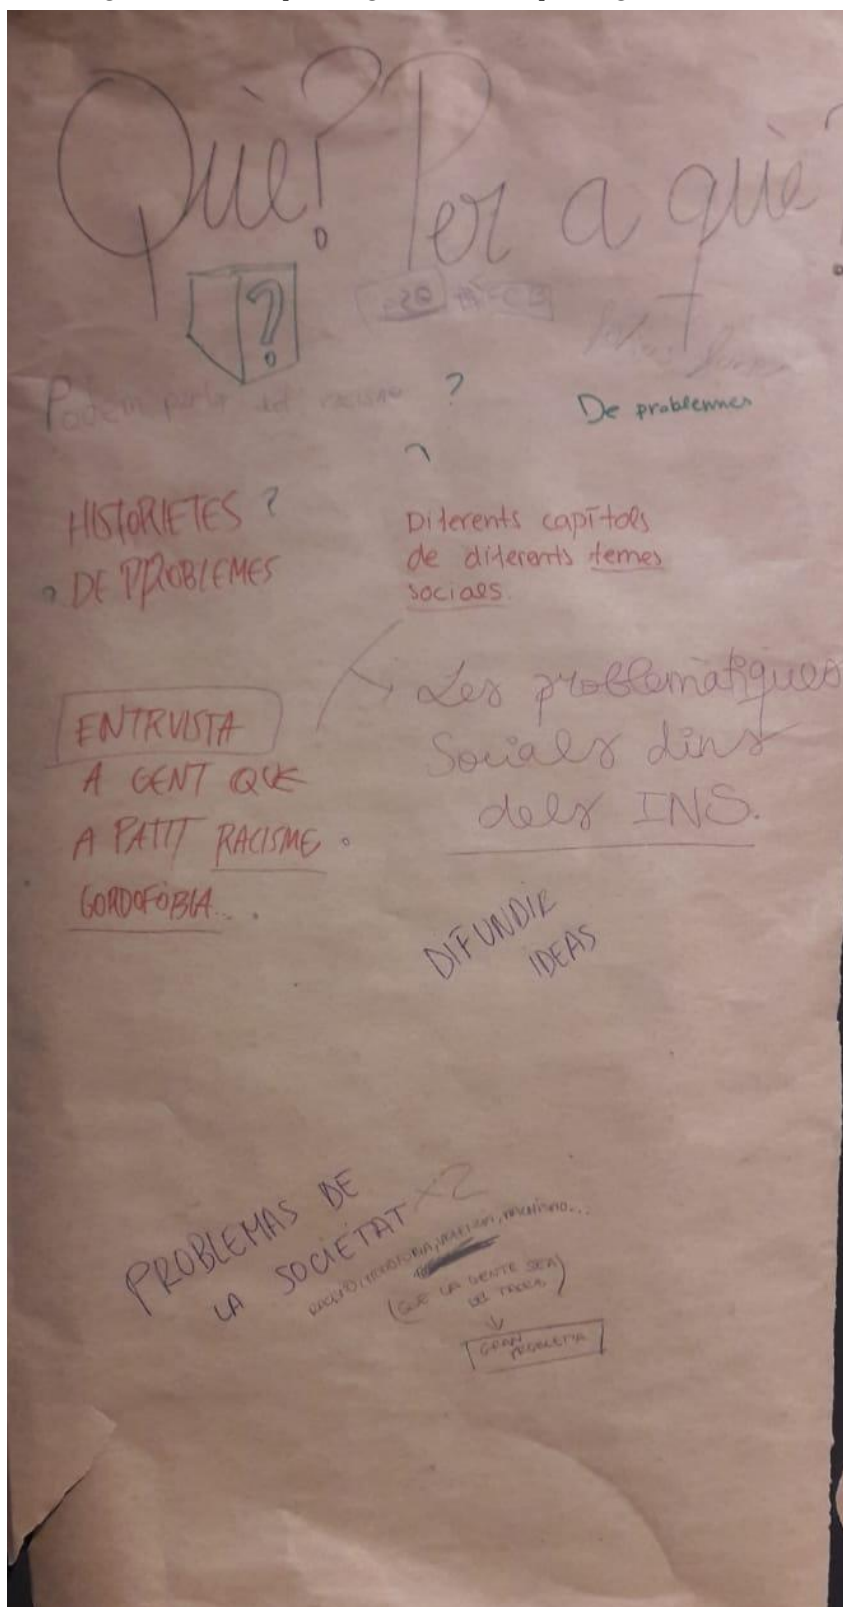 Què? Per a què?
?
Podem parlar del racisme ?
De problemmes
HISTORIETES ?
DE PROBLEMES
Diferents capítols
de diferents temes
socials.
ENTRVISTA
A GENT QUE
A PATIT RACISME.
GORDOFÒBIA...
Les problemàtiques
Socials dins
dels INS.
DIFUNDIR
IDEAS
PROBLEMAS DE
LA SOCIETAT x2
(QUE LA GENTE SEA
GRAN
PROBLEMA